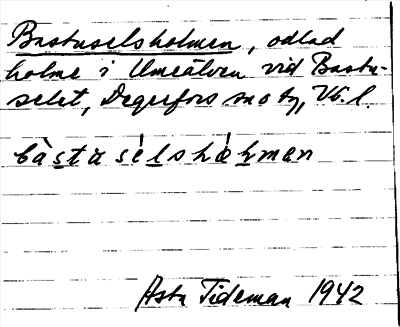 Bastuselsholmen, odlad
holme i Umeälven vid Bastu-
selet, Degerfors sn o tg, Vb. l.
bàstasélshòlmen
Asta Tideman 1942